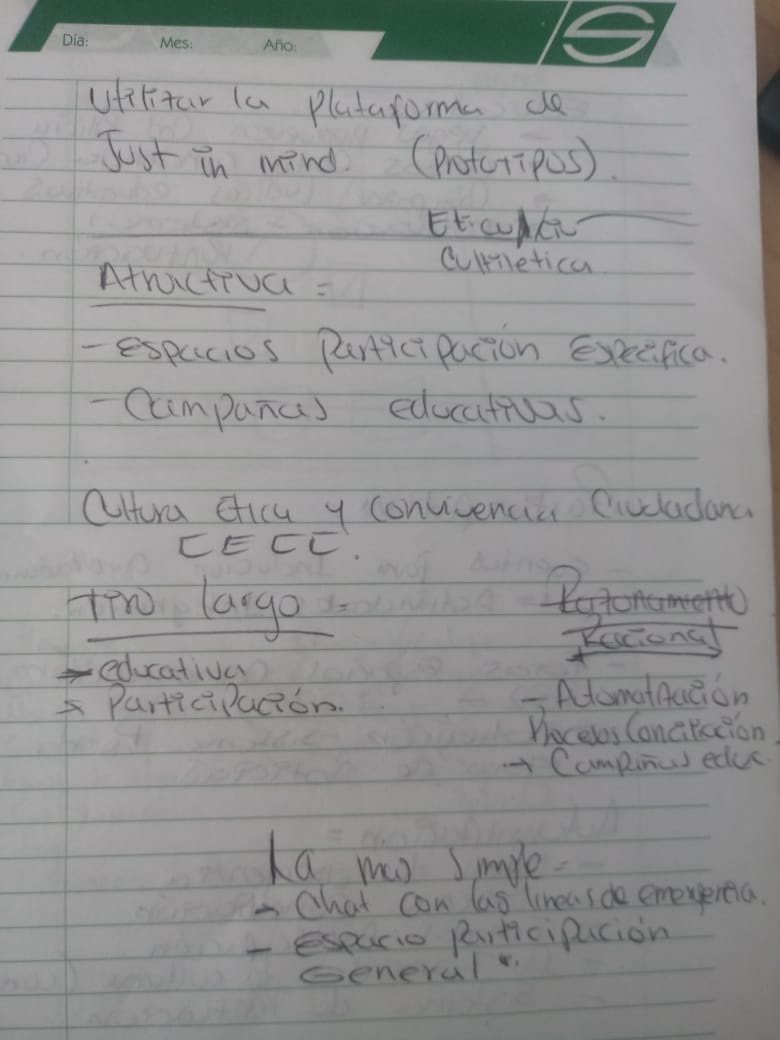 Día: Mes: Año:
Utilizar la plataforma de
Just in mind. (Prototipos).
Cultiletica
Atractiva =
- Espacios Participación Especifica.
- Campañas educativas.
Cultura Etica y convivencia Ciudadana
CECC.
Tiro largo =
→ educativa
→ Participación.
Razonamiento
Racional
- Automatización
Procesos Conciliación
→ Campañas educ.
La mas simple =
→ Chat con las lineas de emergencia.
- Espacio participación
General